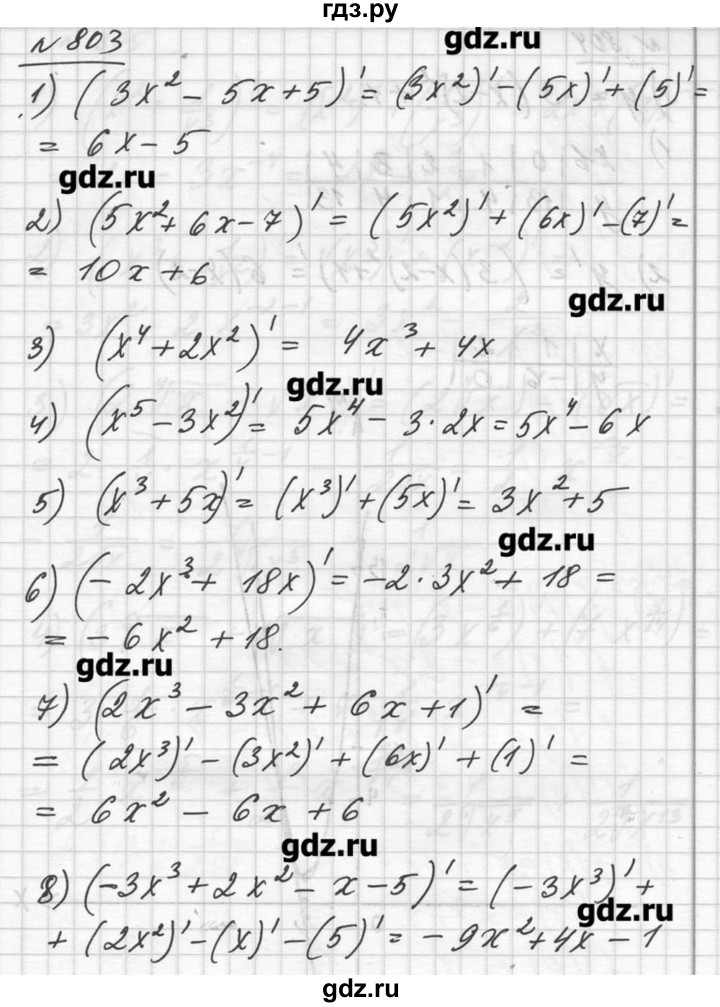 гдз.ру
№ 803
gdz.ru
1) (3x² - 5x + 5)' = (3x²)' - (5x)' + (5)' =
= 6x - 5
gdz.ru
2) (5x² + 6x - 7)' = (5x²)' + (6x)' - (7)' =
= 10x + 6
gdz.ru
3) (x⁴ + 2x²)' = 4x³ + 4x
gdz.ru
4) (x⁵ - 3x²)' = 5x⁴ - 3·2x = 5x⁴ - 6x
5) (x³ + 5x)' = (x³)' + (5x)' = 3x² + 5
gdz.ru
6) (- 2x³ + 18x)' = -2·3x² + 18 =
= - 6x² + 18.
gdz.ru
7) (2x³ - 3x² + 6x + 1)' =
= (2x³)' - (3x²)' + (6x)' + (1)' =
= 6x² - 6x + 6
gdz.ru
8) (-3x³ + 2x² - x - 5)' = (-3x³)' +
gdz.ru
+ (2x²)' - (x)' - (5)' = - 9x² + 4x - 1
gdz.ru